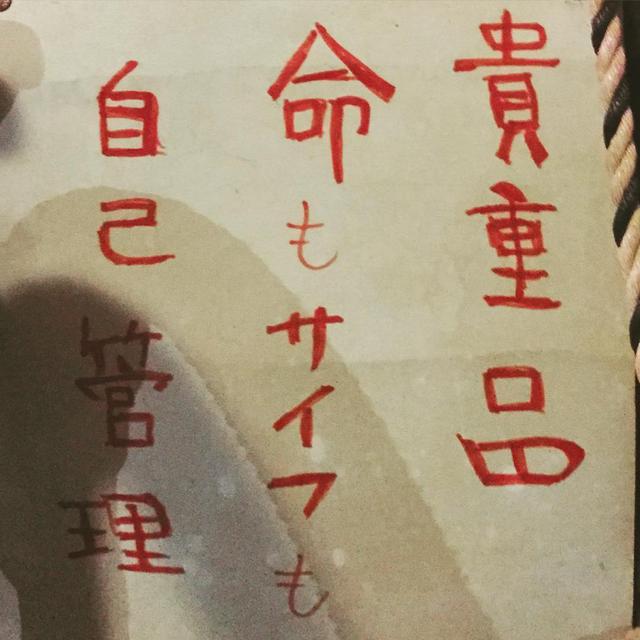 貴重品
命もサイフも
自己管理